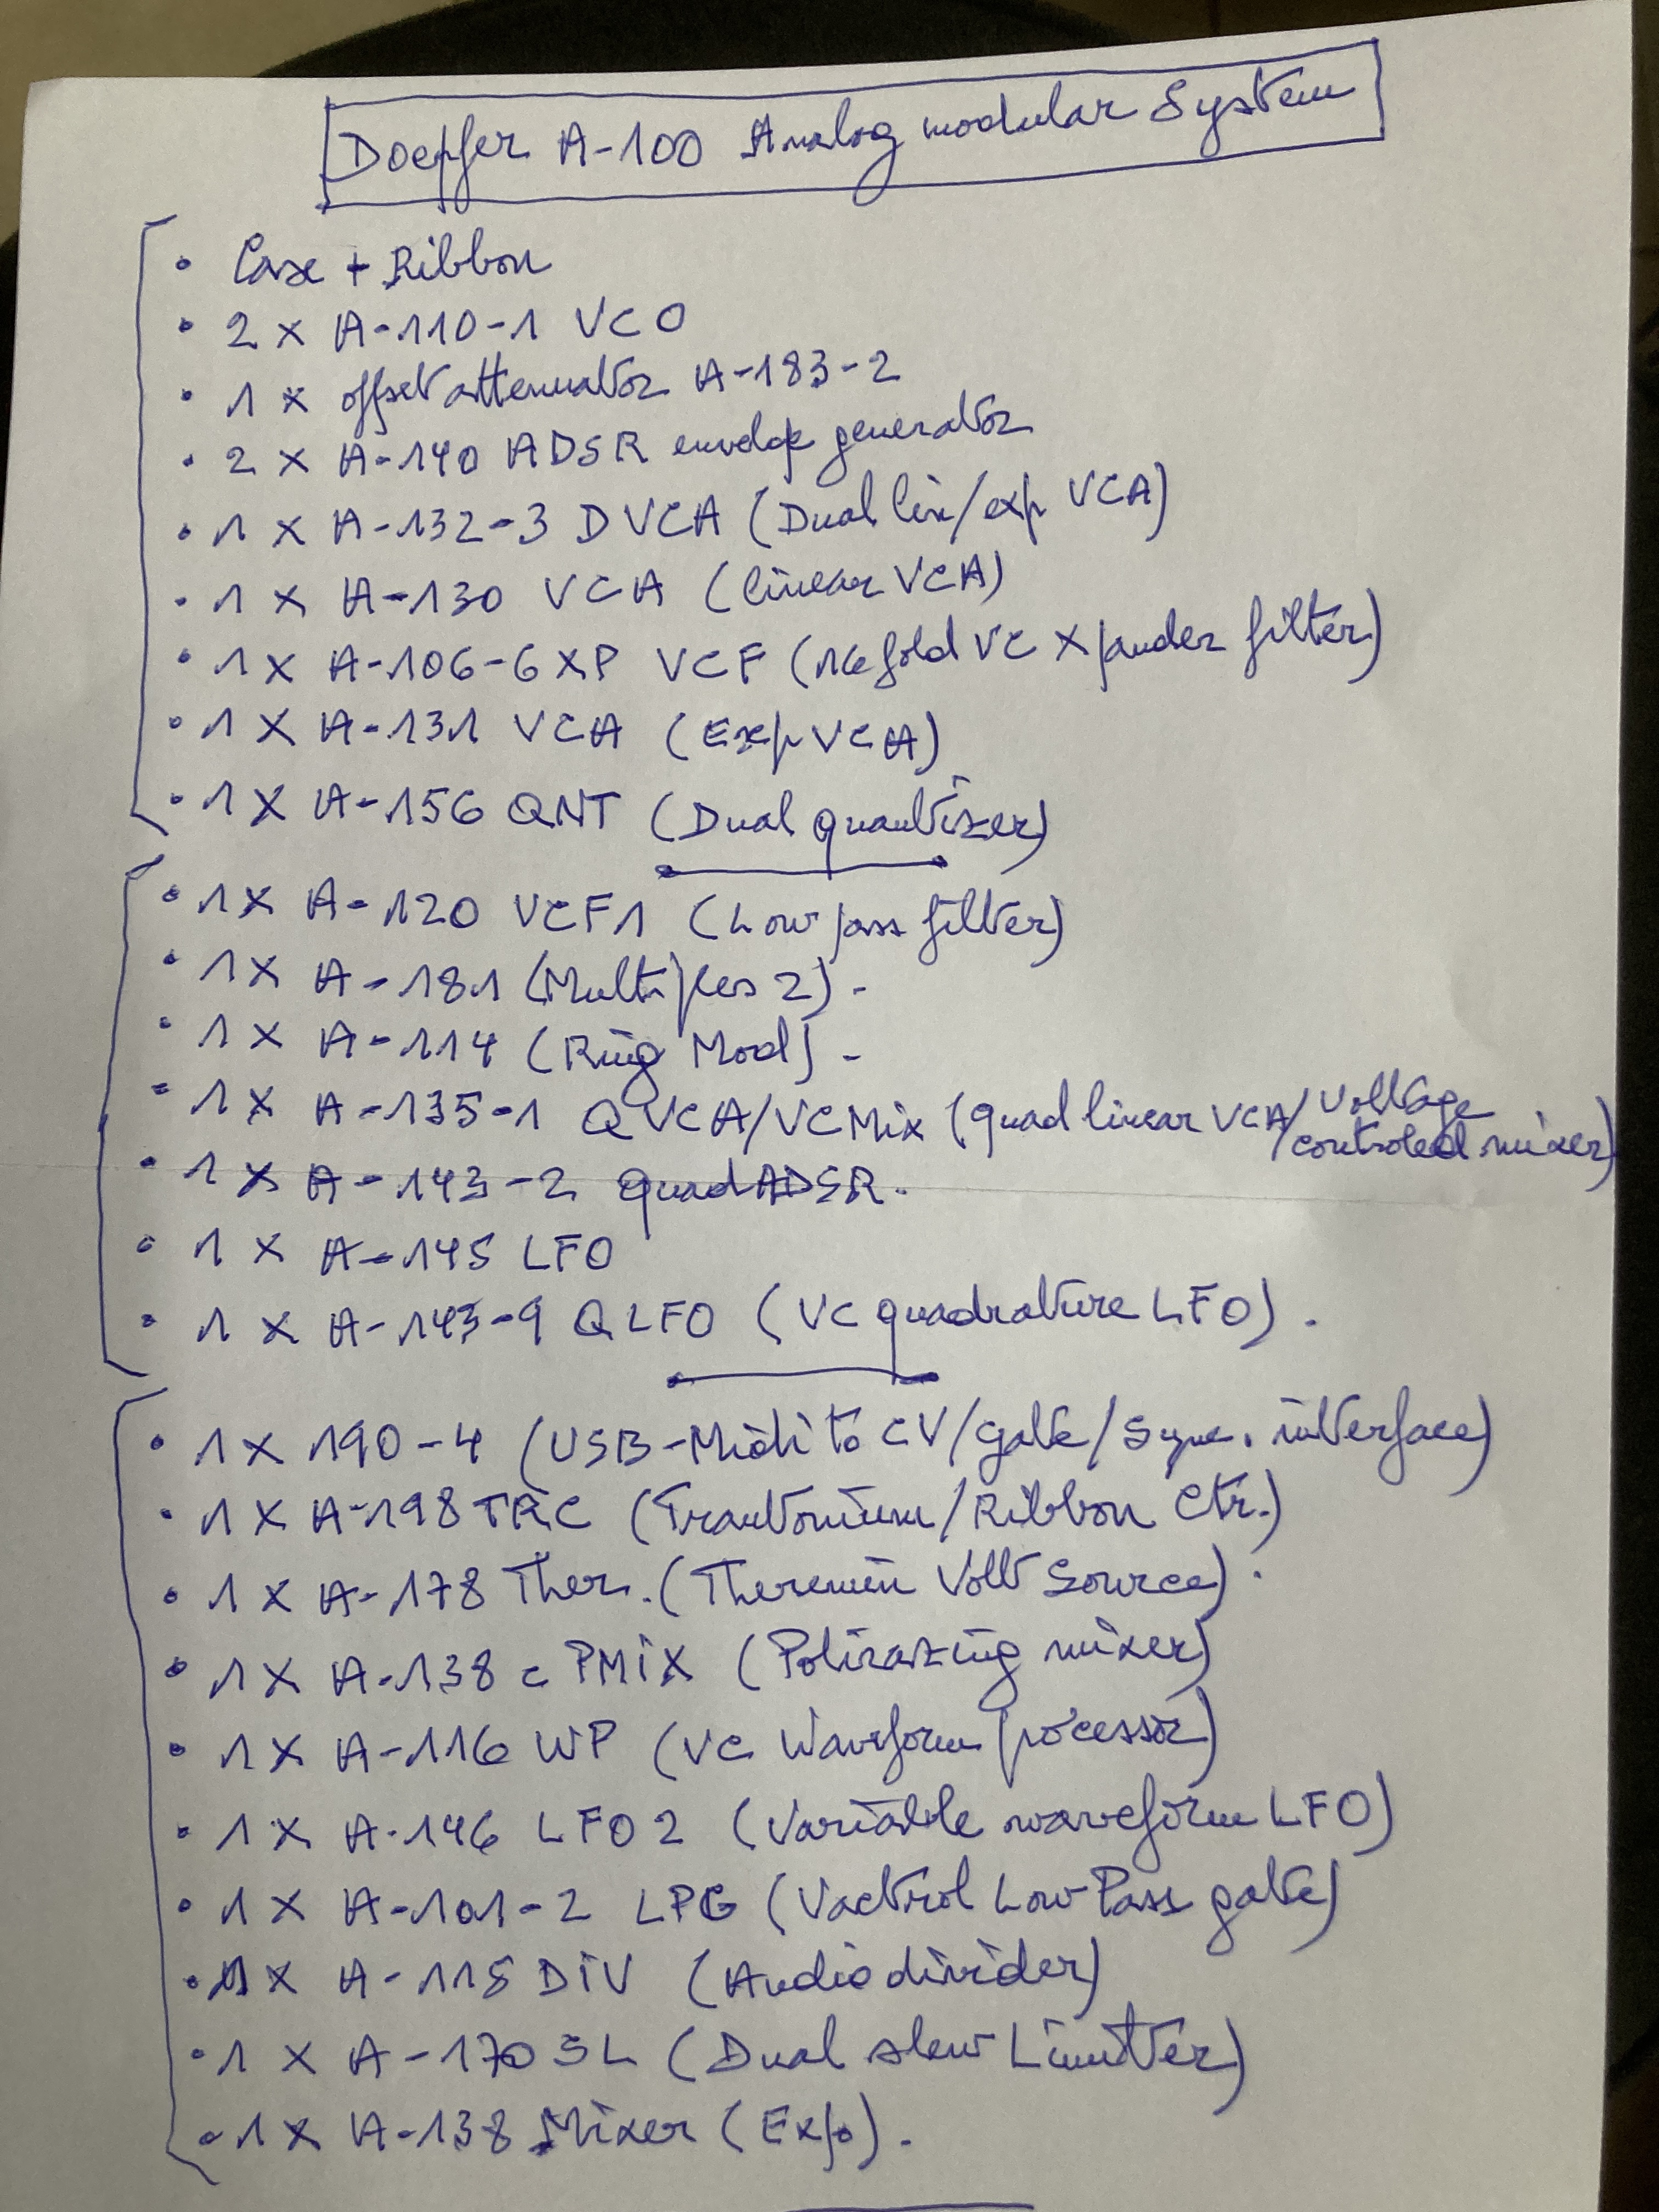 Doepfer A-100 Analog modular System
• Case + Ribbon
• 2 x A-110-1 VCO
• 1 x offset attenuator A-183-2
• 2 x A-140 ADSR envelope generator
• 1 x A-132-3 DVCA (Dual lin/exp VCA)
• 1 x A-130 VCA (linear VCA)
• 1 x A-106-6 XP VCF (16 fold VC Xpander filter)
• 1 x A-131 VCA (Exp VCA)
• 1 x A-156 QNT (Dual quantizer)
• 1x A-120 VCF1 (Low pass filter)
• 1x A-181 (Multiples 2) -
• 1 x A-114 (Ring Mod) -
• 1x A-135-1 QVCA/VCMix (quad linear VCA/voltage controled mixer)
• 1 x A-143-2 quad ADSR.
• 1 x A-145 LFO
• 1 x A-143-9 QLFO (VC quadrature LFO).
• 1 x 190-4 (USB-Midi to CV/gate/Sync. interface)
• 1 x A-198 TRC (Trautonium/Ribbon Ctr.)
• 1 x A-178 Ther. (Theremin Volt Source).
• 1 x A-138 c PMiX (Polirazing mixer)
• 1 x A-116 WP (VC Waveform processor)
• 1 x A-146 LFO 2 (Variable waveform LFO)
• 1 x A-101-2 LPG (Vactrol Low Pass gate)
• 1x A-115 DiV (Audio divider)
• 1 x A-170 SL (Dual slew Limiter)
- 1 x A-138 Mixer (Expo).